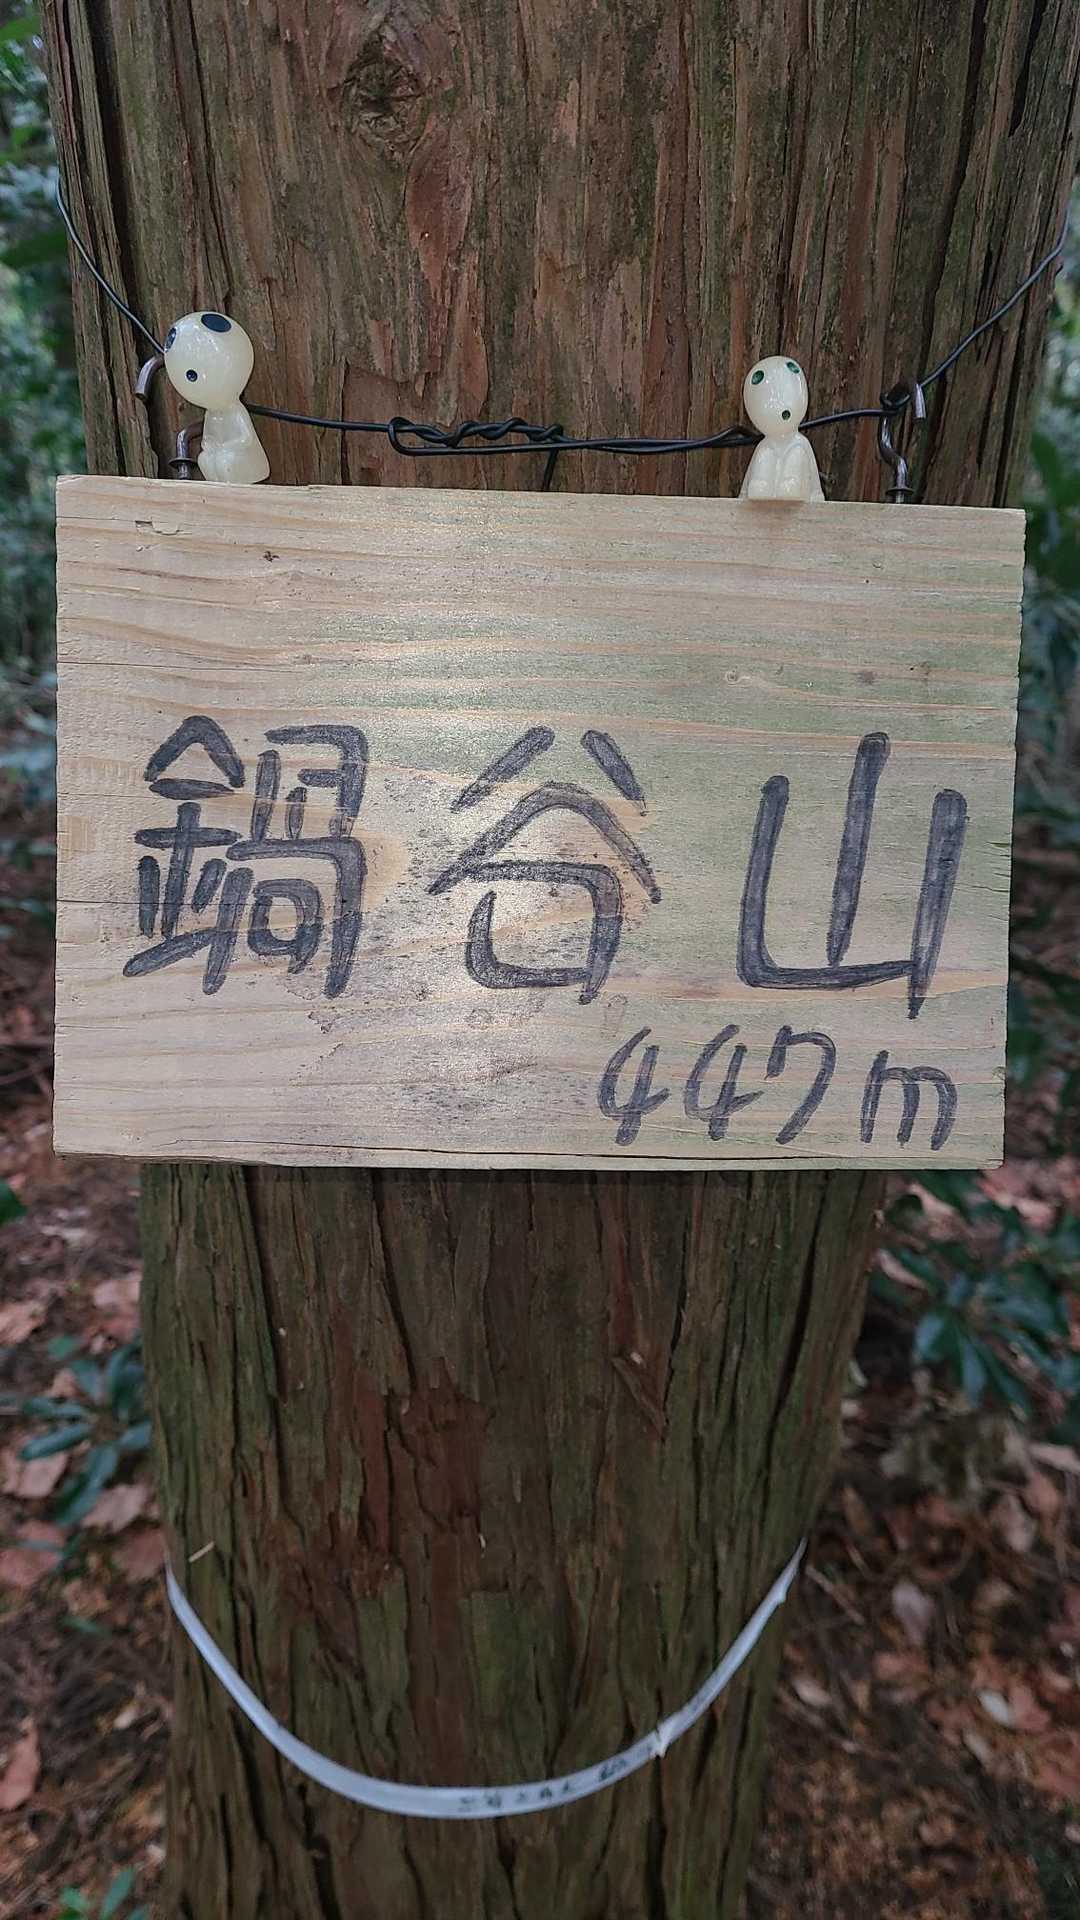 鍋谷山
447m